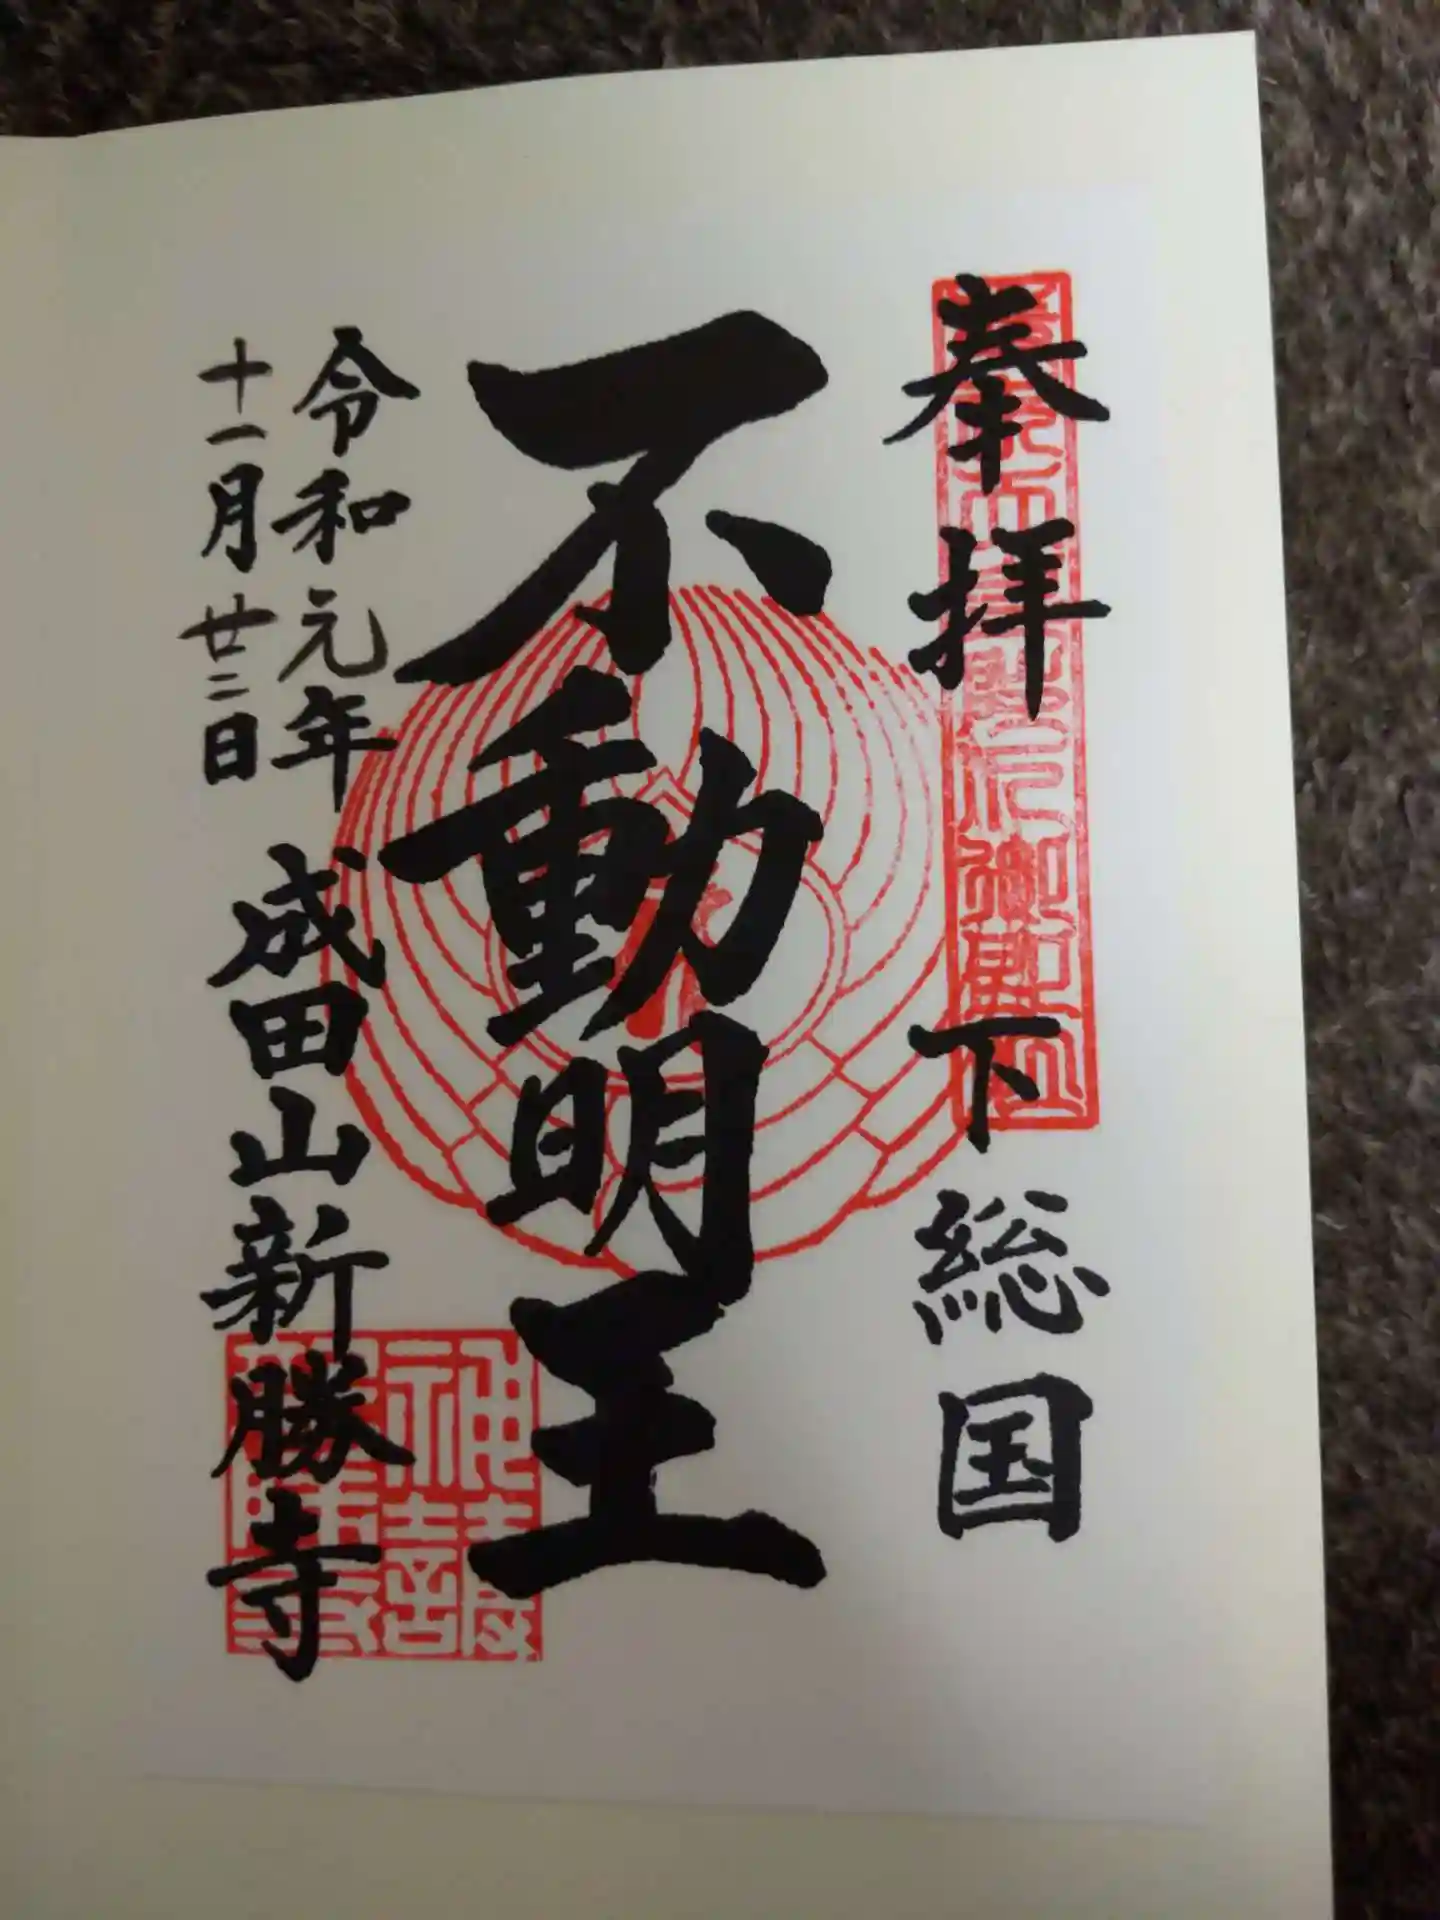 奉拝 下総国
不動明王
令和元年
十一月廿二日
成田山新勝寺